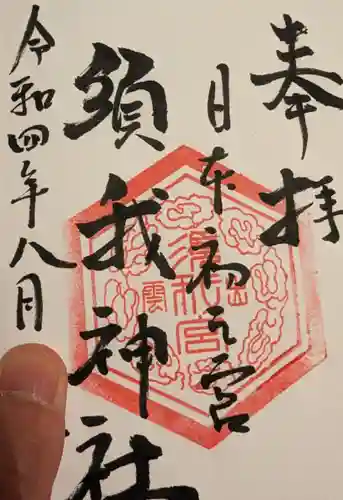 奉拝
日本初之宮
須我神社
令和四年八月
須我宮
出雲